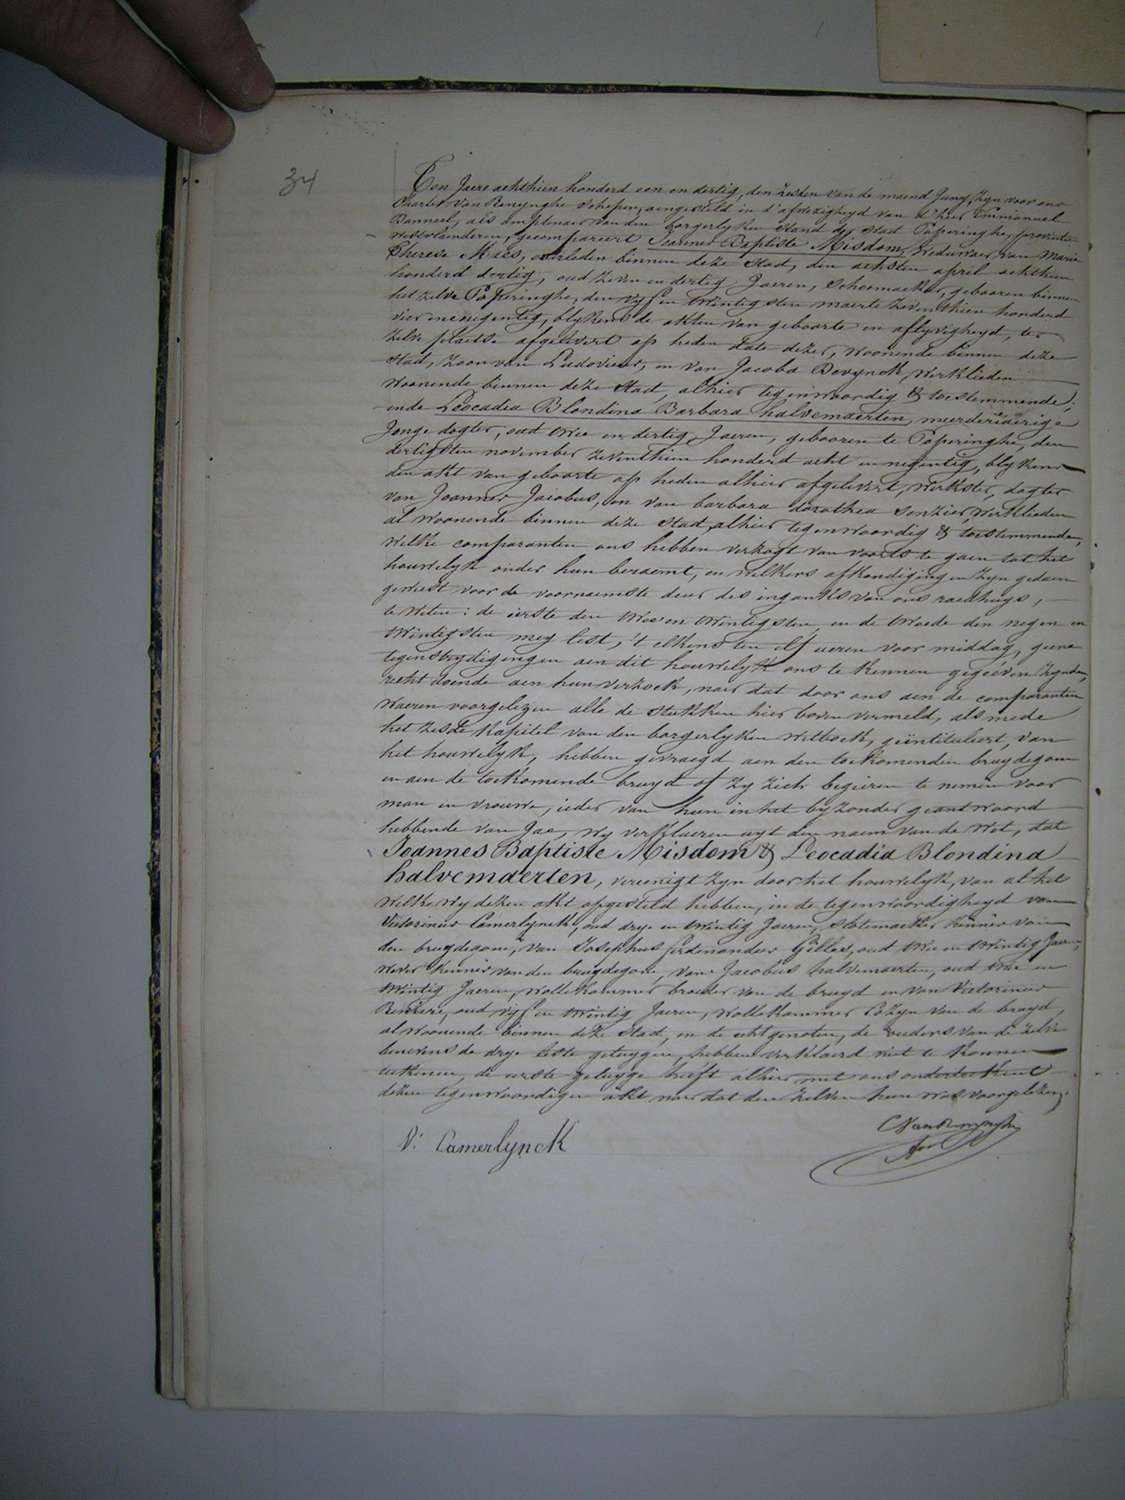 34
Ten Jaere achthien honderd een en dertig, den zesden van de maend Juny, zyn voor ons
Charles Van Renynghe Schepen, aengesteld in d'afwezigheyd van d'heer Emmanuel
Banneel, als amptenaer van den borgerlyken stand der stad Poperinghe, provintie
Westvlaenderen, gecompareert Joannes Baptiste Misdom, Weduwaer van Marie
Theresa Maes, overleden binnen deze stad, den achtsten april achthien
honderd dertig, oud zeven en dertig Jaeren, Schoemaeker, gebooren binnen
het zelve Poperinghe, den vyf en twintigsten maerte zeventhien honderd
vier en negentig, blykens de akten van geboorte en aflyvigheyd, ter
zelve plaetse afgelevert op heden date dezer, woonende binnen deze
stad, zoon van Ludovicus, en van Jacoba Devynck, Werklieden
woonende binnen deze stad, alhier tegenwoordig & toestemmende;
ende Leocadia Blondina Barbara halvemaerten, meerderjaerige
Jonge dogter, oud twee en dertig Jaeren, gebooren te Poperinghe, den
dertigsten november zeventhien honderd acht en negentig, blykens
den akt van geboorte op heden alhier afgelevert, Werkster, dogter
van Joannes Jacobus, en van barbara dorothea Senzier, Werklieden
al woonende binnen deze stad, alhier tegenwoordig & toestemmende,
Welke comparanten ons hebben verzogt van voorts te gaen tot het
houwelyk onder hun beraemt, en welkers afkondigingen zyn gedaen
geweest voor de voornaemste deur des ingangks van ons raedhuys,
te weten: de eerste den twee en twintigsten, en de tweede den negen en
twintigsten mey lest, 't elkens ten elf ueren voor middag, geene
tegenstrydigingen aen dit houwelyk ons te kennen gegeéven zynde,
recht doende aen hun verzoek, naer dat door ons aen de comparanten
waeren voorgelezen alle de stukken hier boven vermeld, als mede
het zesde kapitel van den borgerlyken wetboek, geïntituleert, van
het houwelyk, hebben gevraegd aen den toekomenden bruydegom
en aen de toekomende bruyd of zy zich begeeren te nemen voor
man en vrouwe, ieder van hun in het byzonder geantwoord
hebbende van Jae, wy verklaeren uyt den naem van de Wet, dat
Joannes Baptiste Misdom & Leocadia Blondina
halvemaerten, vereenigt zyn door het houwelyk, van al het
welke wy dezen akt opgesteld hebben, in de tegenwoordigheyd van
Victorinus Camerlynck, oud drye en twintig Jaeren, Slotemaeker kennis van
den bruydegom, van Josephus ferdinandus Gillas, oud twee en twintig Jaeren,
Wever kennis van den bruydegom, van Jacobus halvemaerten, oud twee en
twintig Jaeren, Wollekammer broeder van de bruyd en van Victorinus
oud vyf en twintig Jaeren, Wollekammer Cozyn van de bruyd,
al woonende binnen deze stad, en de echtgenoten, de ouders van de zelve
benevens de drye leste getuygen, hebben verklaerd niet te konnen
teekenen, de eerste getuyge heeft alhier met ons onderteekent
dezen tegenwoordigen akt naer dat den zelven hun was voorgelezen.
V: Camerlynck
C Van Renynghe